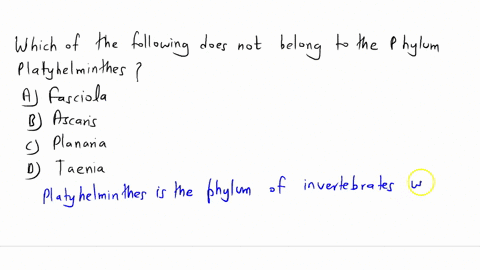 Which of the following does not belong to the Phylum
Platyhelminthes ?
A) Fasciola
B) Ascaris
C) Planaria
D) Taenia
Platyhelminthes is the phylum of invertebrates w